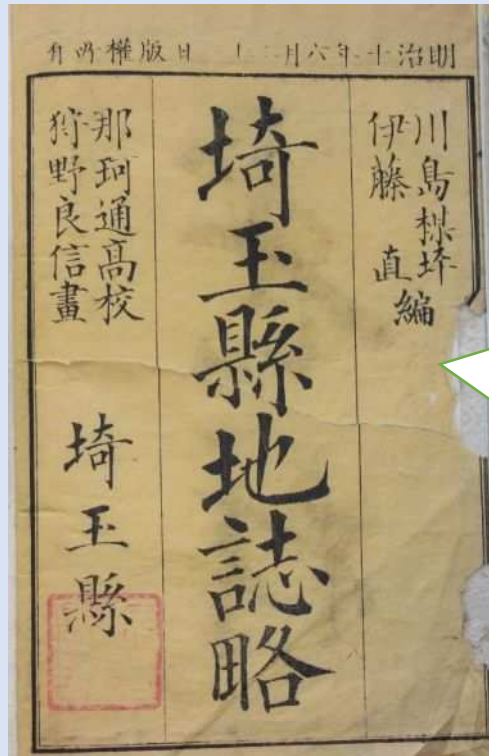 明治十年六月 日版權所有
川島楳坪
伊藤直編
埼玉縣地誌略
那珂通高校
狩野良信畫
埼玉縣